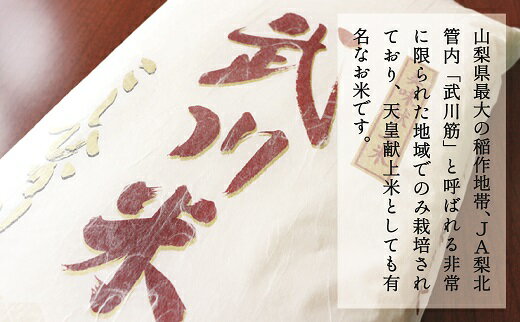 山梨県最大の稲作地帯、JA梨北
管内「武川筋」と呼ばれる非常
に限られた地域でのみ栽培され
ており、天皇献上米としても有
名なお米です。
武川米
こしひかり